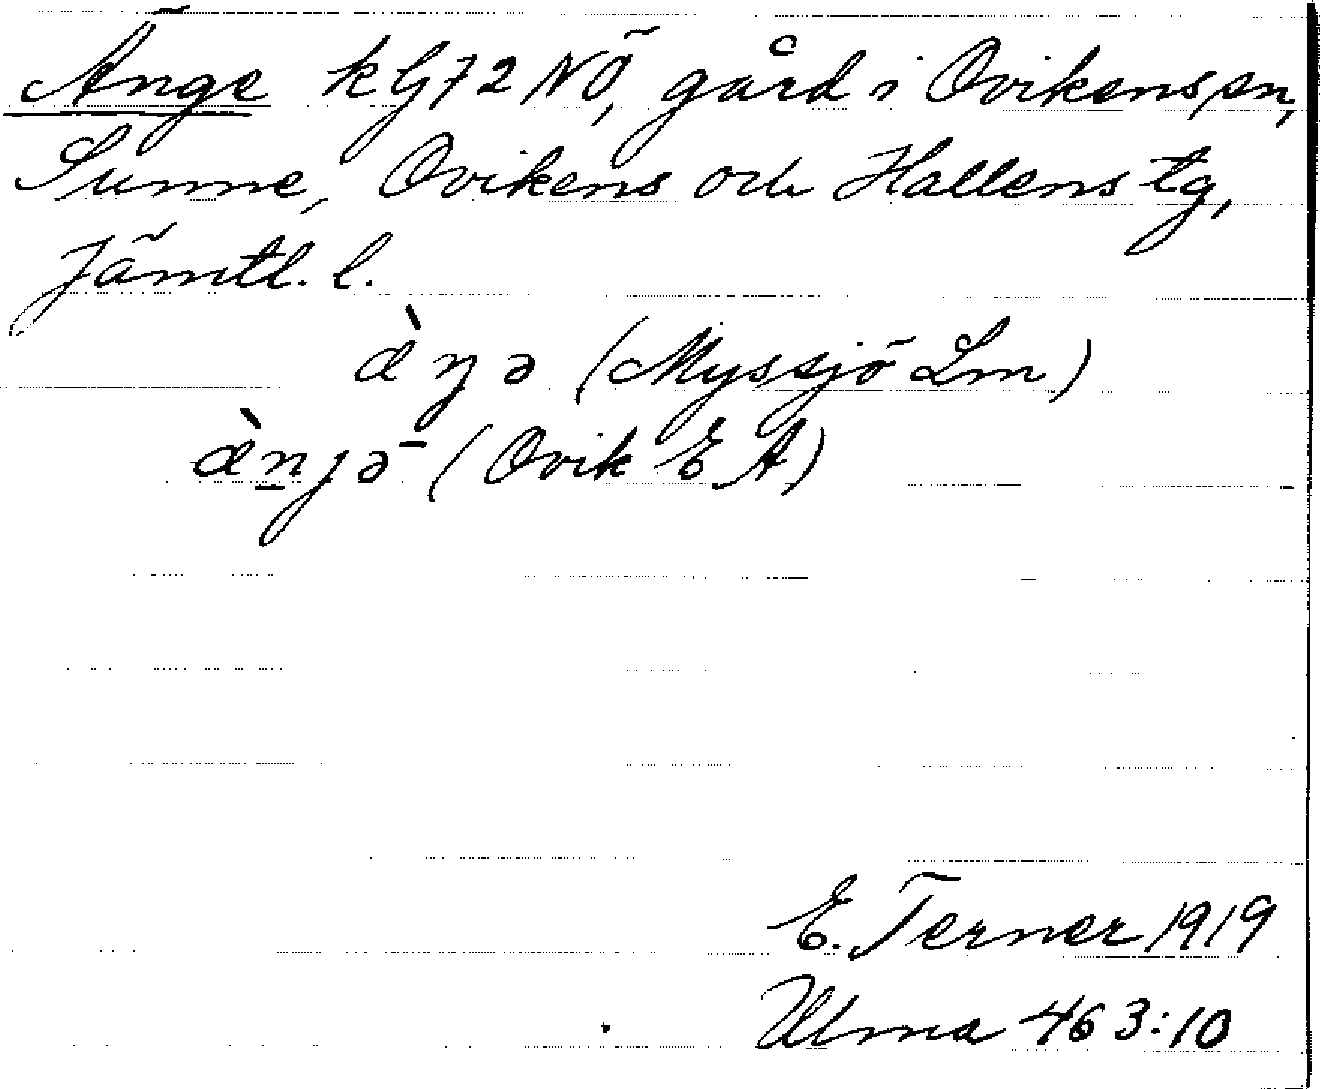 Änge kG72NÖ, gård i Ovikens sn,
Sunne, Ovikens och Hallens tg,
Jämtl. l.
æ̀ŋə (Myssjö Lm)
æ̀n̲jə- (Ovik EA)
E. Terner 1919
Ulma 463:10